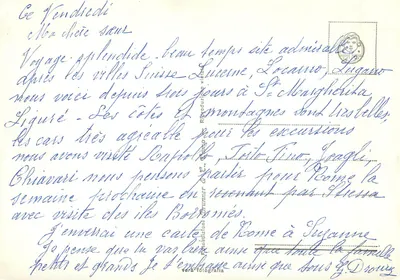 Ce Vendredi
Ma chère sœur
Voyage splendide. beau temps cité admirable
après les villes Suisse Lucerne, Locarno, Lugano
nous voici depuis jours à St Margherita
Ligure - Les côtes et montagnes sont très belles,
les cars très agréable pour les excursions
nous avons visité Rapallo, Porto Fino, Zoagli,
Chiavari nous pensons partir pour Rome la
semaine prochaine en revenant par Stresa
avec visite des iles Borromés.
J'enverrai une carte de Rome à Suzanne
Je pense que tu vas bien ainsi que toute la famille
petits et grands Je t'embrasse ainsi que tous